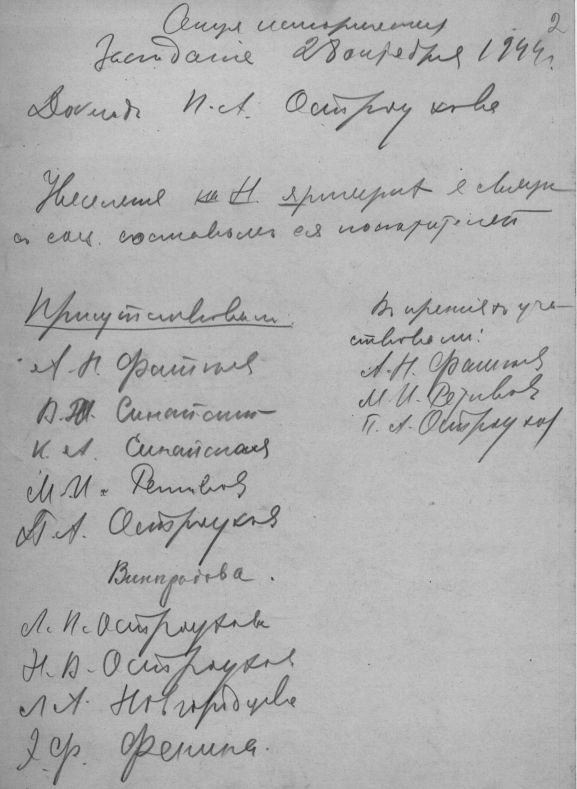 2
Секция историческая
Заседание 28 октября 1944 г.
Доклад П. А. Остроухова
на Н. ярмарке в связи
с соц. составом ея покупателей
Присутствовали
А. Н. Фатеев
В. И. Синайский
К. А. Синайская
М. И. Ретивов
П. А. Остроухов
Виноградова.
Л. П. Остроухова
Н. В. Остроухов
Л. А. Новгородцева
Э. Ф. Фенина.
В прениях уча-
ствовали:
А. Н. Фатеев
М. И. Ретивов
П. А. Остроухов